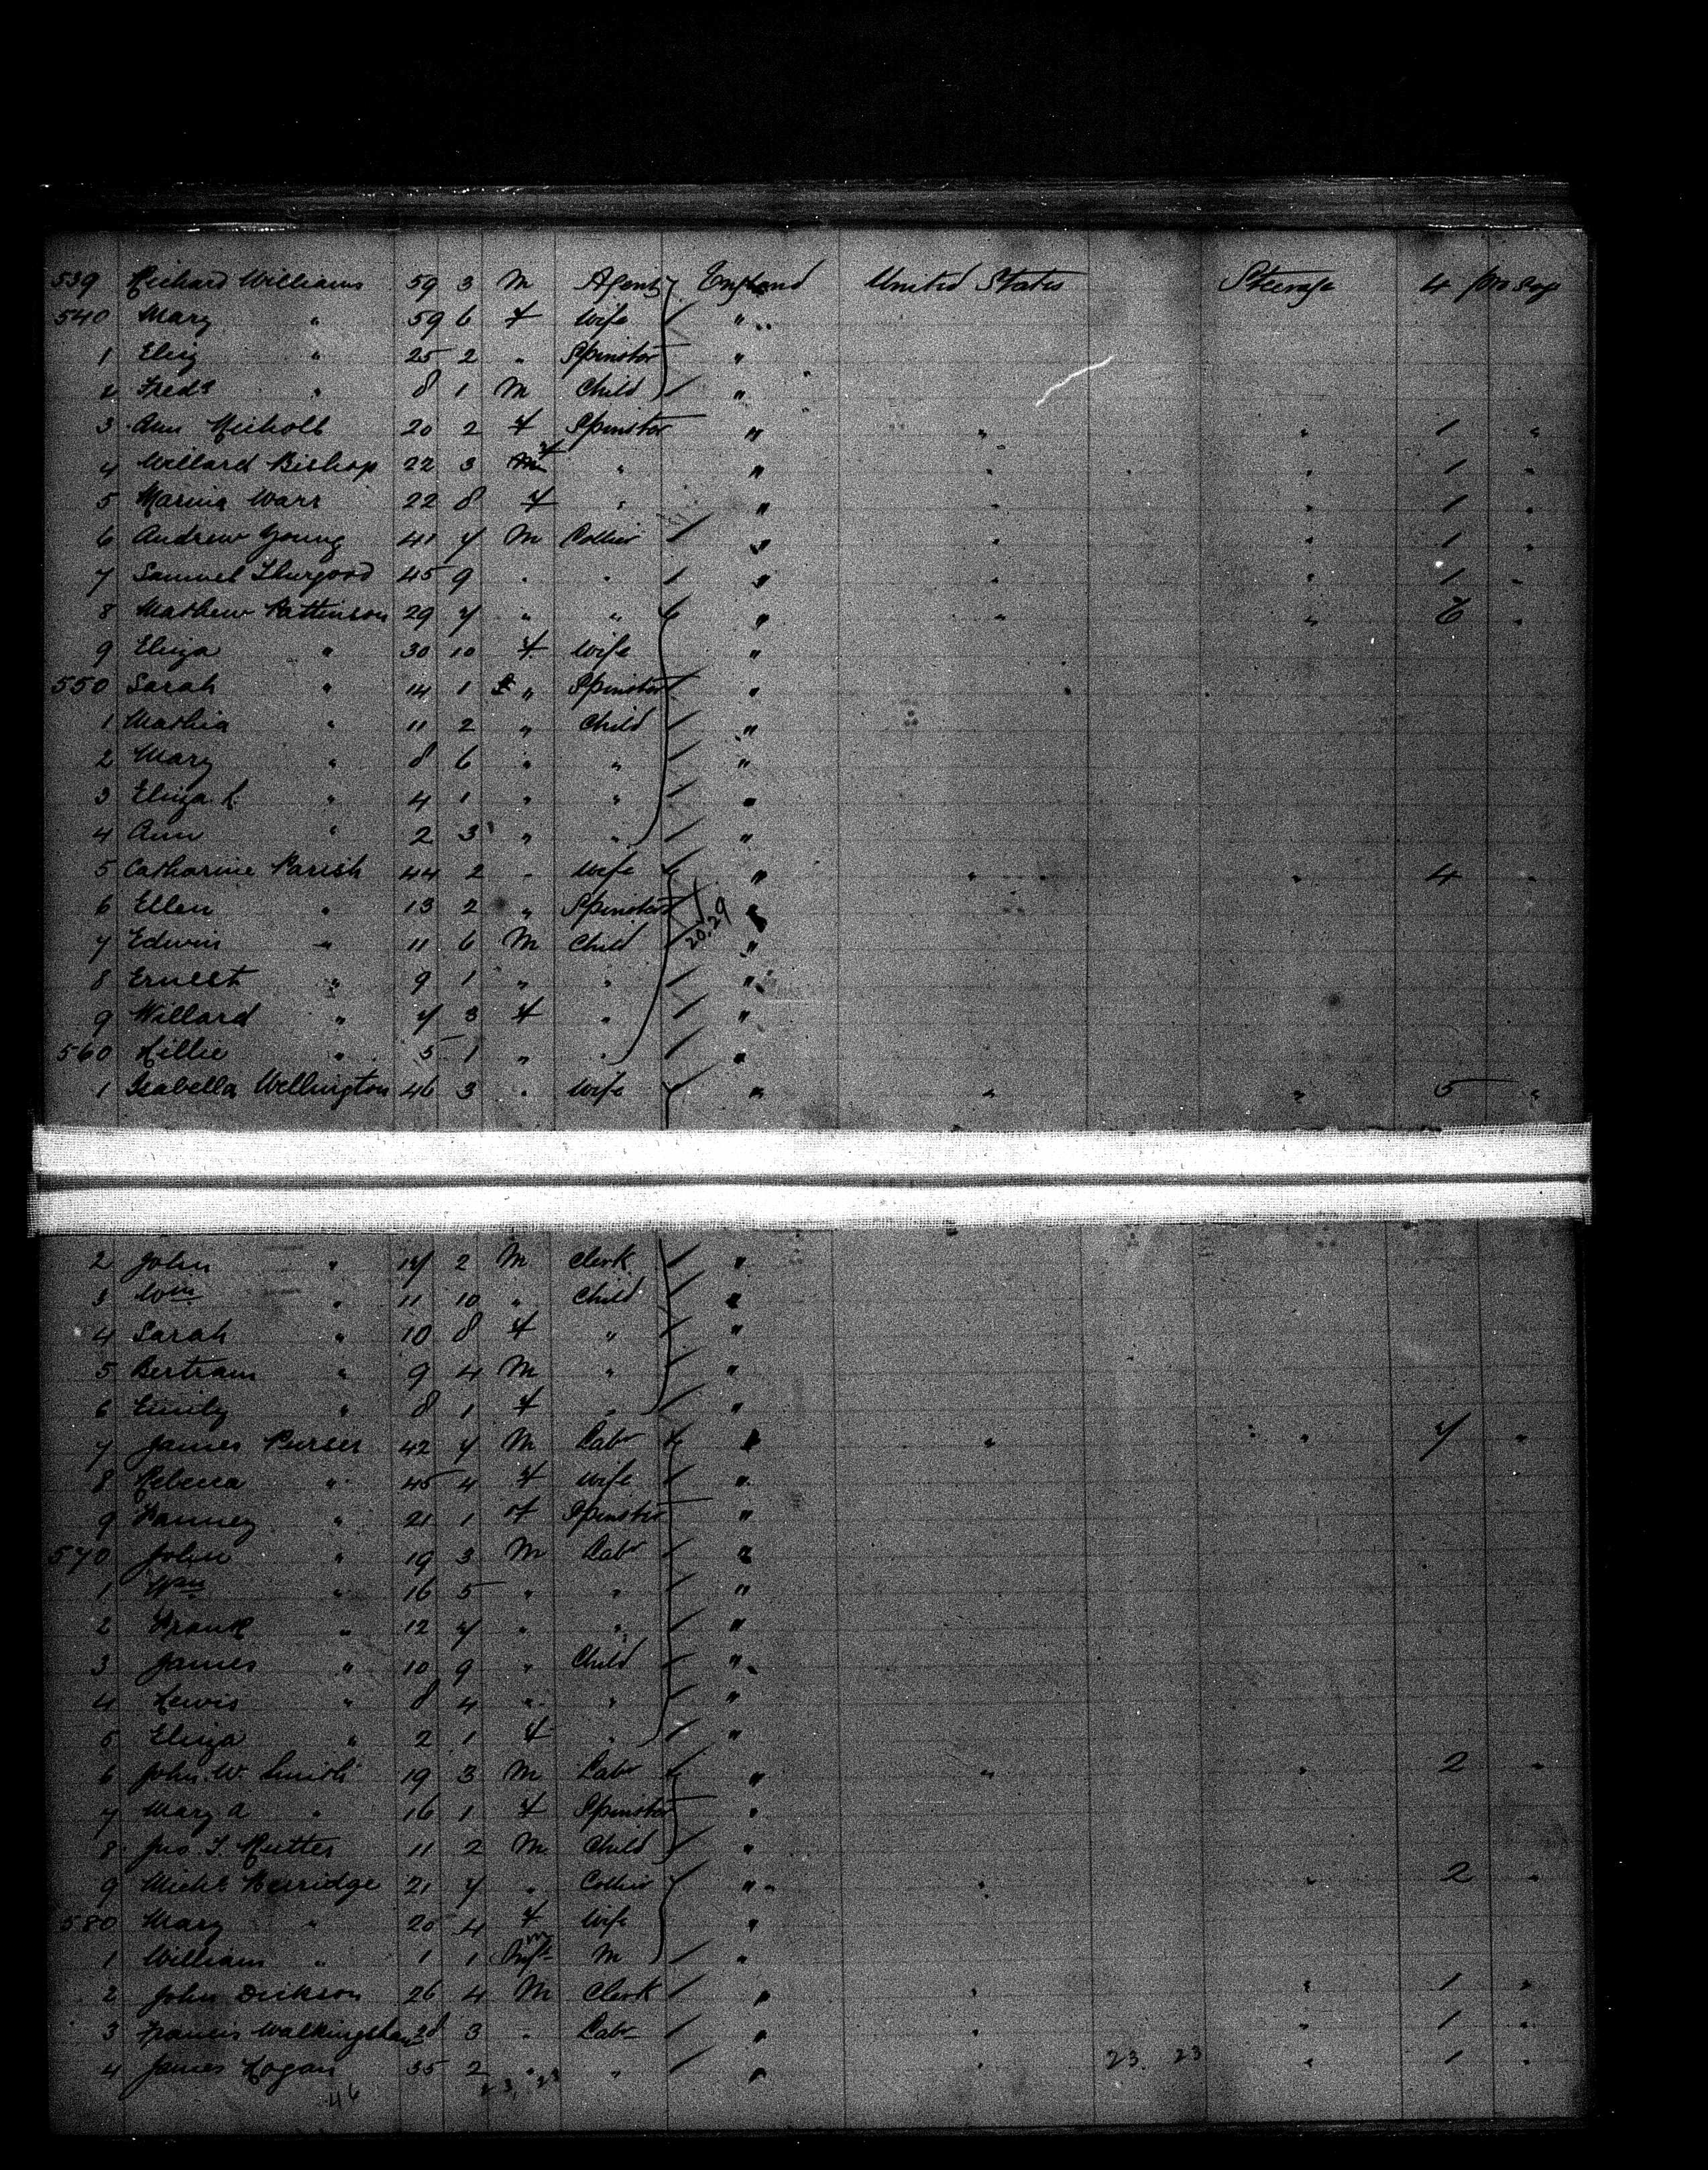 539 Richard Williams 59 3 M Agent England United States Steerage 4 pro Sage
540 Mary " 59 6 F Wife "
1 Eliz " 25 2 " Spinster "
2 Fredk " 8 1 M Child "
3 Ann Nicholl 20 2 F Spinster " " " 1 "
4 Willard Bishop 22 3 F " " " " 1 "
5 Warr 22 8 F " " " " 1 "
6 Andrew Young 41 7 M Collier " " " 1 "
7 Samuel Thurgood 45 9 " " " " " 1 "
8 Mathew Pattinson 29 7 " " " " " 6 "
9 Eliza " 30 10 F Wife "
550 Sarah " 14 1 " Spinster "
1 Mathia " 11 2 " Child "
2 Mary " 8 6 " " "
3 Eliza " 4 1 " " "
4 Ann " 2 3 " " "
5 Catharine Parish 44 2 " Wife " " " 4 "
6 Ellen " 13 2 " Spinster "
7 Edwin " 11 6 M Child 20.29 "
8 Ernest " 9 1 " " "
9 Willard " 7 3 F " "
560 " 5 1 " " "
1 Isabella Wellington 46 3 " Wife " " " 5 "
2 John " 14 2 M Clerk "
3 Wm " 11 10 " Child "
4 Sarah " 10 8 F " "
5 Bertram " 9 4 M " "
6 Emily " 8 1 F " "
7 James Purser 42 7 M Labr " " " 7 "
8 Rebecca " 45 4 F Wife "
9 Fanney " 21 1 F Spinster "
570 John " 19 3 M Labr "
1 Wm " 16 5 " " "
2 Frank " 12 7 " " "
3 James " 10 9 " Child "
4 Lewis " 8 4 " " "
5 Eliza " 2 1 F " "
6 John W. Smith 19 3 M Labr " " " 2 "
7 Mary A " 16 1 F Spinster "
8 Jno T. Rutter 11 2 M Child "
9 Michl Berridge 21 7 " Collier " " " 2 "
580 Mary " 20 4 F Wife "
1 William " 1 1 Inft M "
2 John Dickson 26 4 M Clerk " " " 1 "
3 Francis Walkingshaw 28 3 " Labr " " " 1 "
4 James Hogan 35 2 " " " " 23. 23 " 1 "
46 23 23